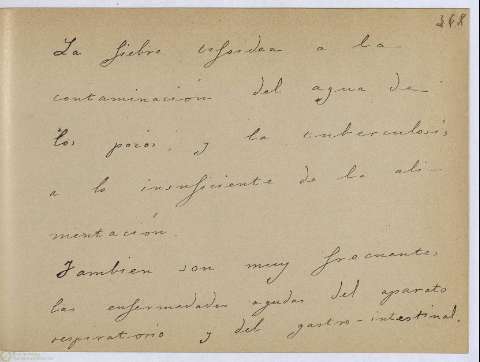 368
La fiebre tifoidea a la
contaminación del agua de
los pozos, y la tuberculosis,
a lo insuficiente de la ali-
mentación.
Tambien son muy frecuentes
las enfermedades agudas del aparato
respiratorio y del gastro-intestinal.